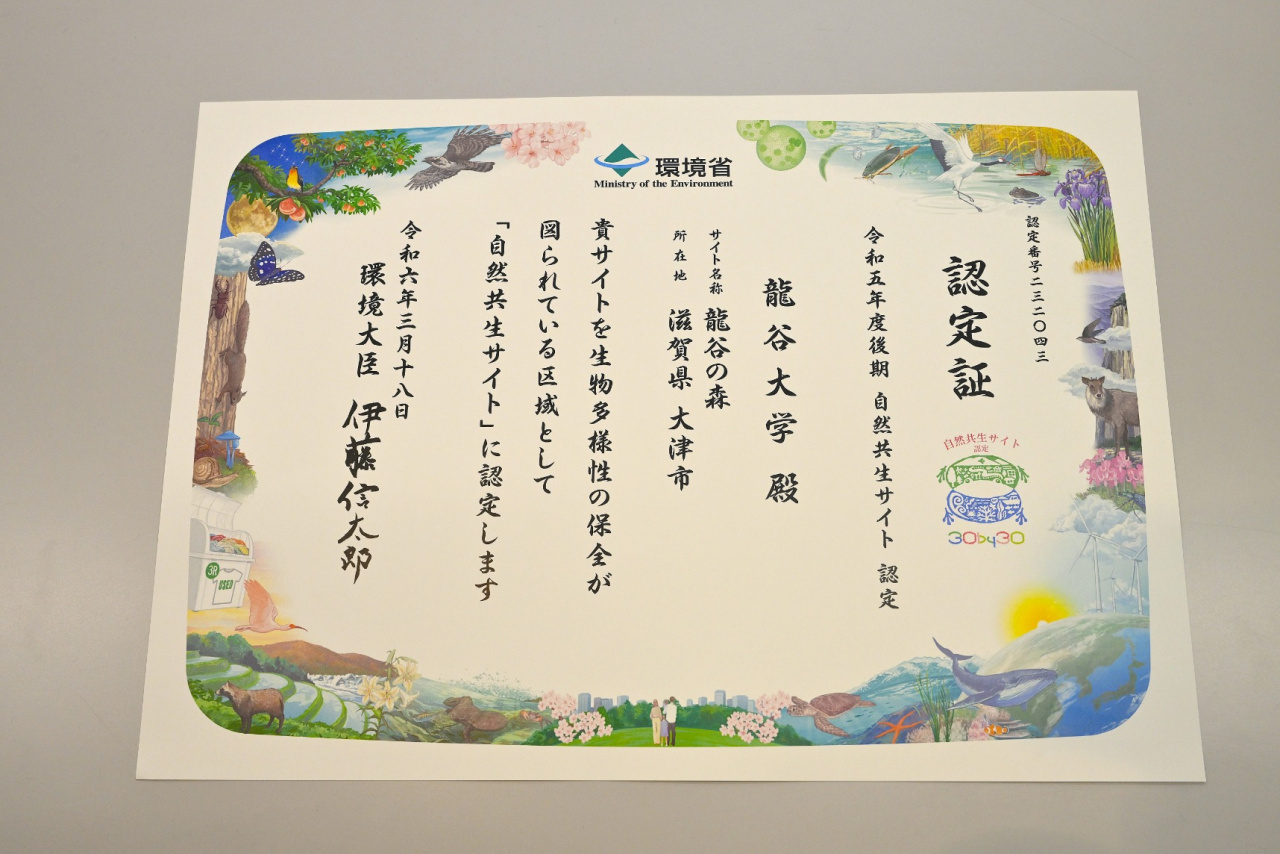 環境省
Ministry of the Environment
認定番号二三二〇四三
認定証
自然共生サイト
認定
30by30
令和五年度後期 自然共生サイト 認定
龍谷大学 殿
サイト名称 龍谷の森
所在地 滋賀県 大津市
貴サイトを生物多様性の保全が
図られている区域として
「自然共生サイト」に認定します
令和六年三月十八日
環境大臣 伊藤信太郎
3R
USED